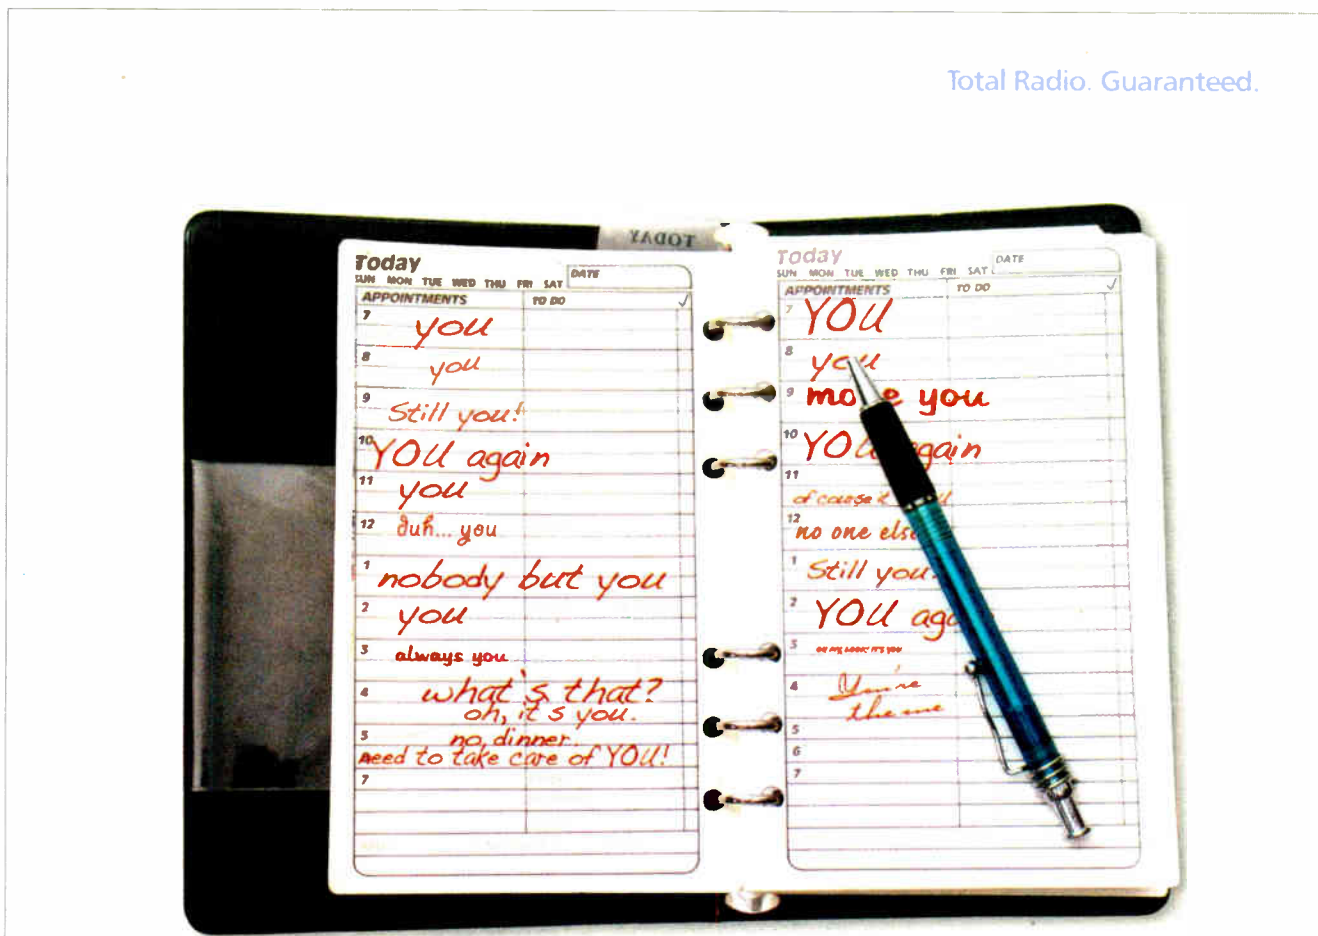 Total Radio. Guaranteed.
TODAY
Today
SUN MON TUE WED THU FRI SAT
DATE
APPOINTMENTS TO DO
7 you
8 you
9 Still you!
10 YOU again
11 you
12 duh... you
1 nobody but you
2 you
3 always you
4 what's that?
oh, it's you.
5 no dinner.
need to take care of YOU!
7
Today
SUN MON TUE WED THU FRI SAT
DATE
APPOINTMENTS TO DO
7 YOU
8 you
9 you
10 YOU again
11 of course it
12 no one else
1 Still you
2 YOU
3 oh my look! it's you
4 You're
the one
5
6
7